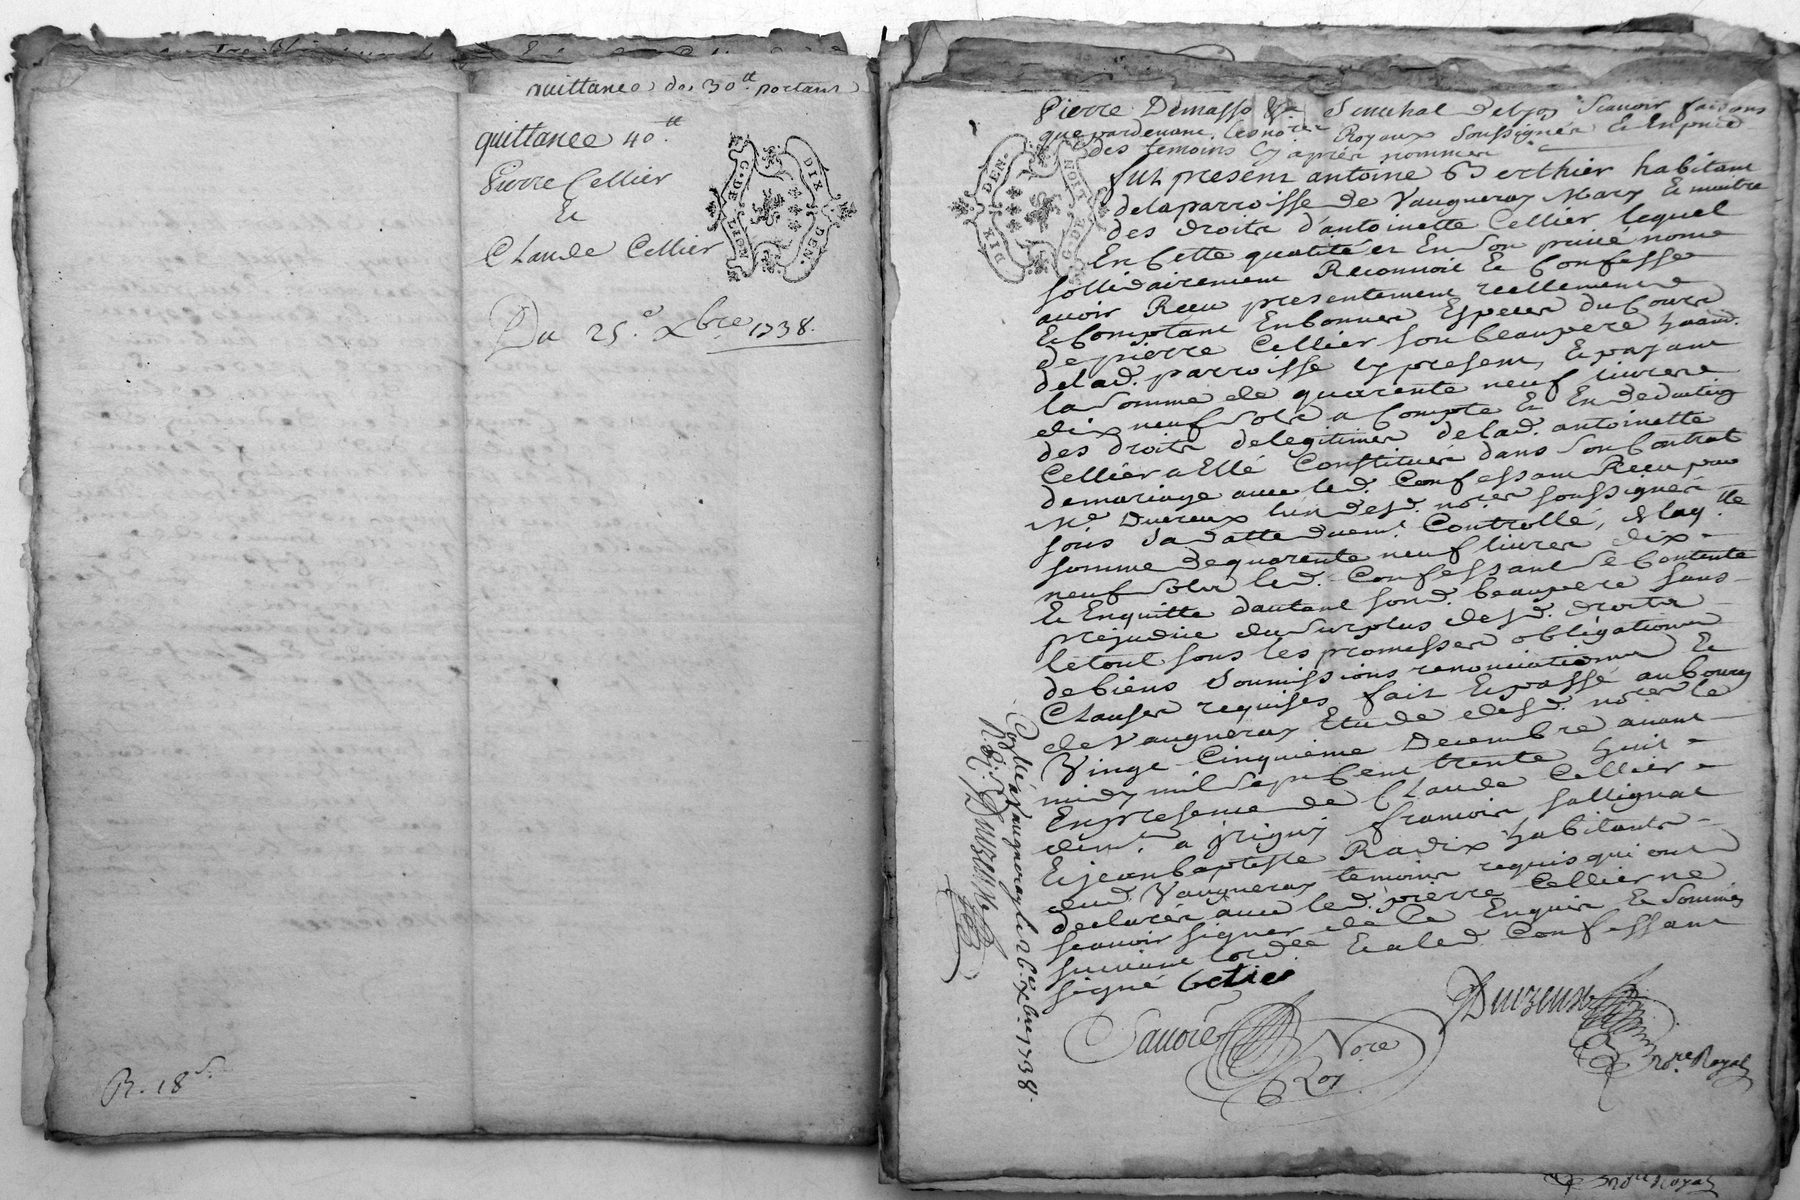 quittance de 30tt. portant
quittance 40tt.
Pierre Cellier
Et
Claude Cellier
G. DE LION
DIX DEN.
Du 25e. Xbre 1738.
R. 18s.
Pierre Demasso &a Senechal delyon Scavoir faisons
que pardevant les nores Royaux Soussignés Et En pnce
des temoins cy aprés nommés
DIX DEN.
G. DE LION
fut present antoine Berthier habitant
delaparroisse de Vaugneray Mary Et maitre
des droits d'antoinette Cellier lequel
En Cette qualité et En Son privé nom
sollidairement Reconnoit Et Confesse
avoir Receu presentement reellement
Et Comptant En bonnes Especes du Cours
de pierre Cellier Son beaupere
delad. parroisse cy present, Et payant
la Somme de quarente neuf livres
dix neuf Sols a Compte Et En deduction
des droits delegitimes delad. antoinette
Cellier a Elle Constitués dans Son Contrat
demariage avec led. Confessant Receu par
Me. Duvzeux lun desd. nores soussignés
sous Sa datte duemt. Controllé, de laqlle
somme dequarente neuf livres dix
neuf Sols led. Confessant Se Contente
Et Enquitte dautant sond. beaupere sans
prejudice du Surplus desd. droits
letout sous les promesses obligations
debiens Soumissions renonciations Et
Clauses requises fait Et passé aubourg
de Vaugneray Etude desd. nores le
Vingt Cinquieme Decembre avant
midy mil Sept Cent trente huit
En presence de Claude Cellier
demt. a yrigny francois Sallignat
Et jean baptiste Radix habitants
aud. Vaugneray temoins requis qui ont
declarés avec led. pierre Cellier ne
scavoir signer de Ce Enquis Et Sommés
suivant lordce Et aled. Confessant
signé
Duvzeux
nore. Royal
Savoré
Nore
Roy.
Collé a Vaugneray le 26e. Xbre 1738.
R. 6s. Duvzeux
nore Royal